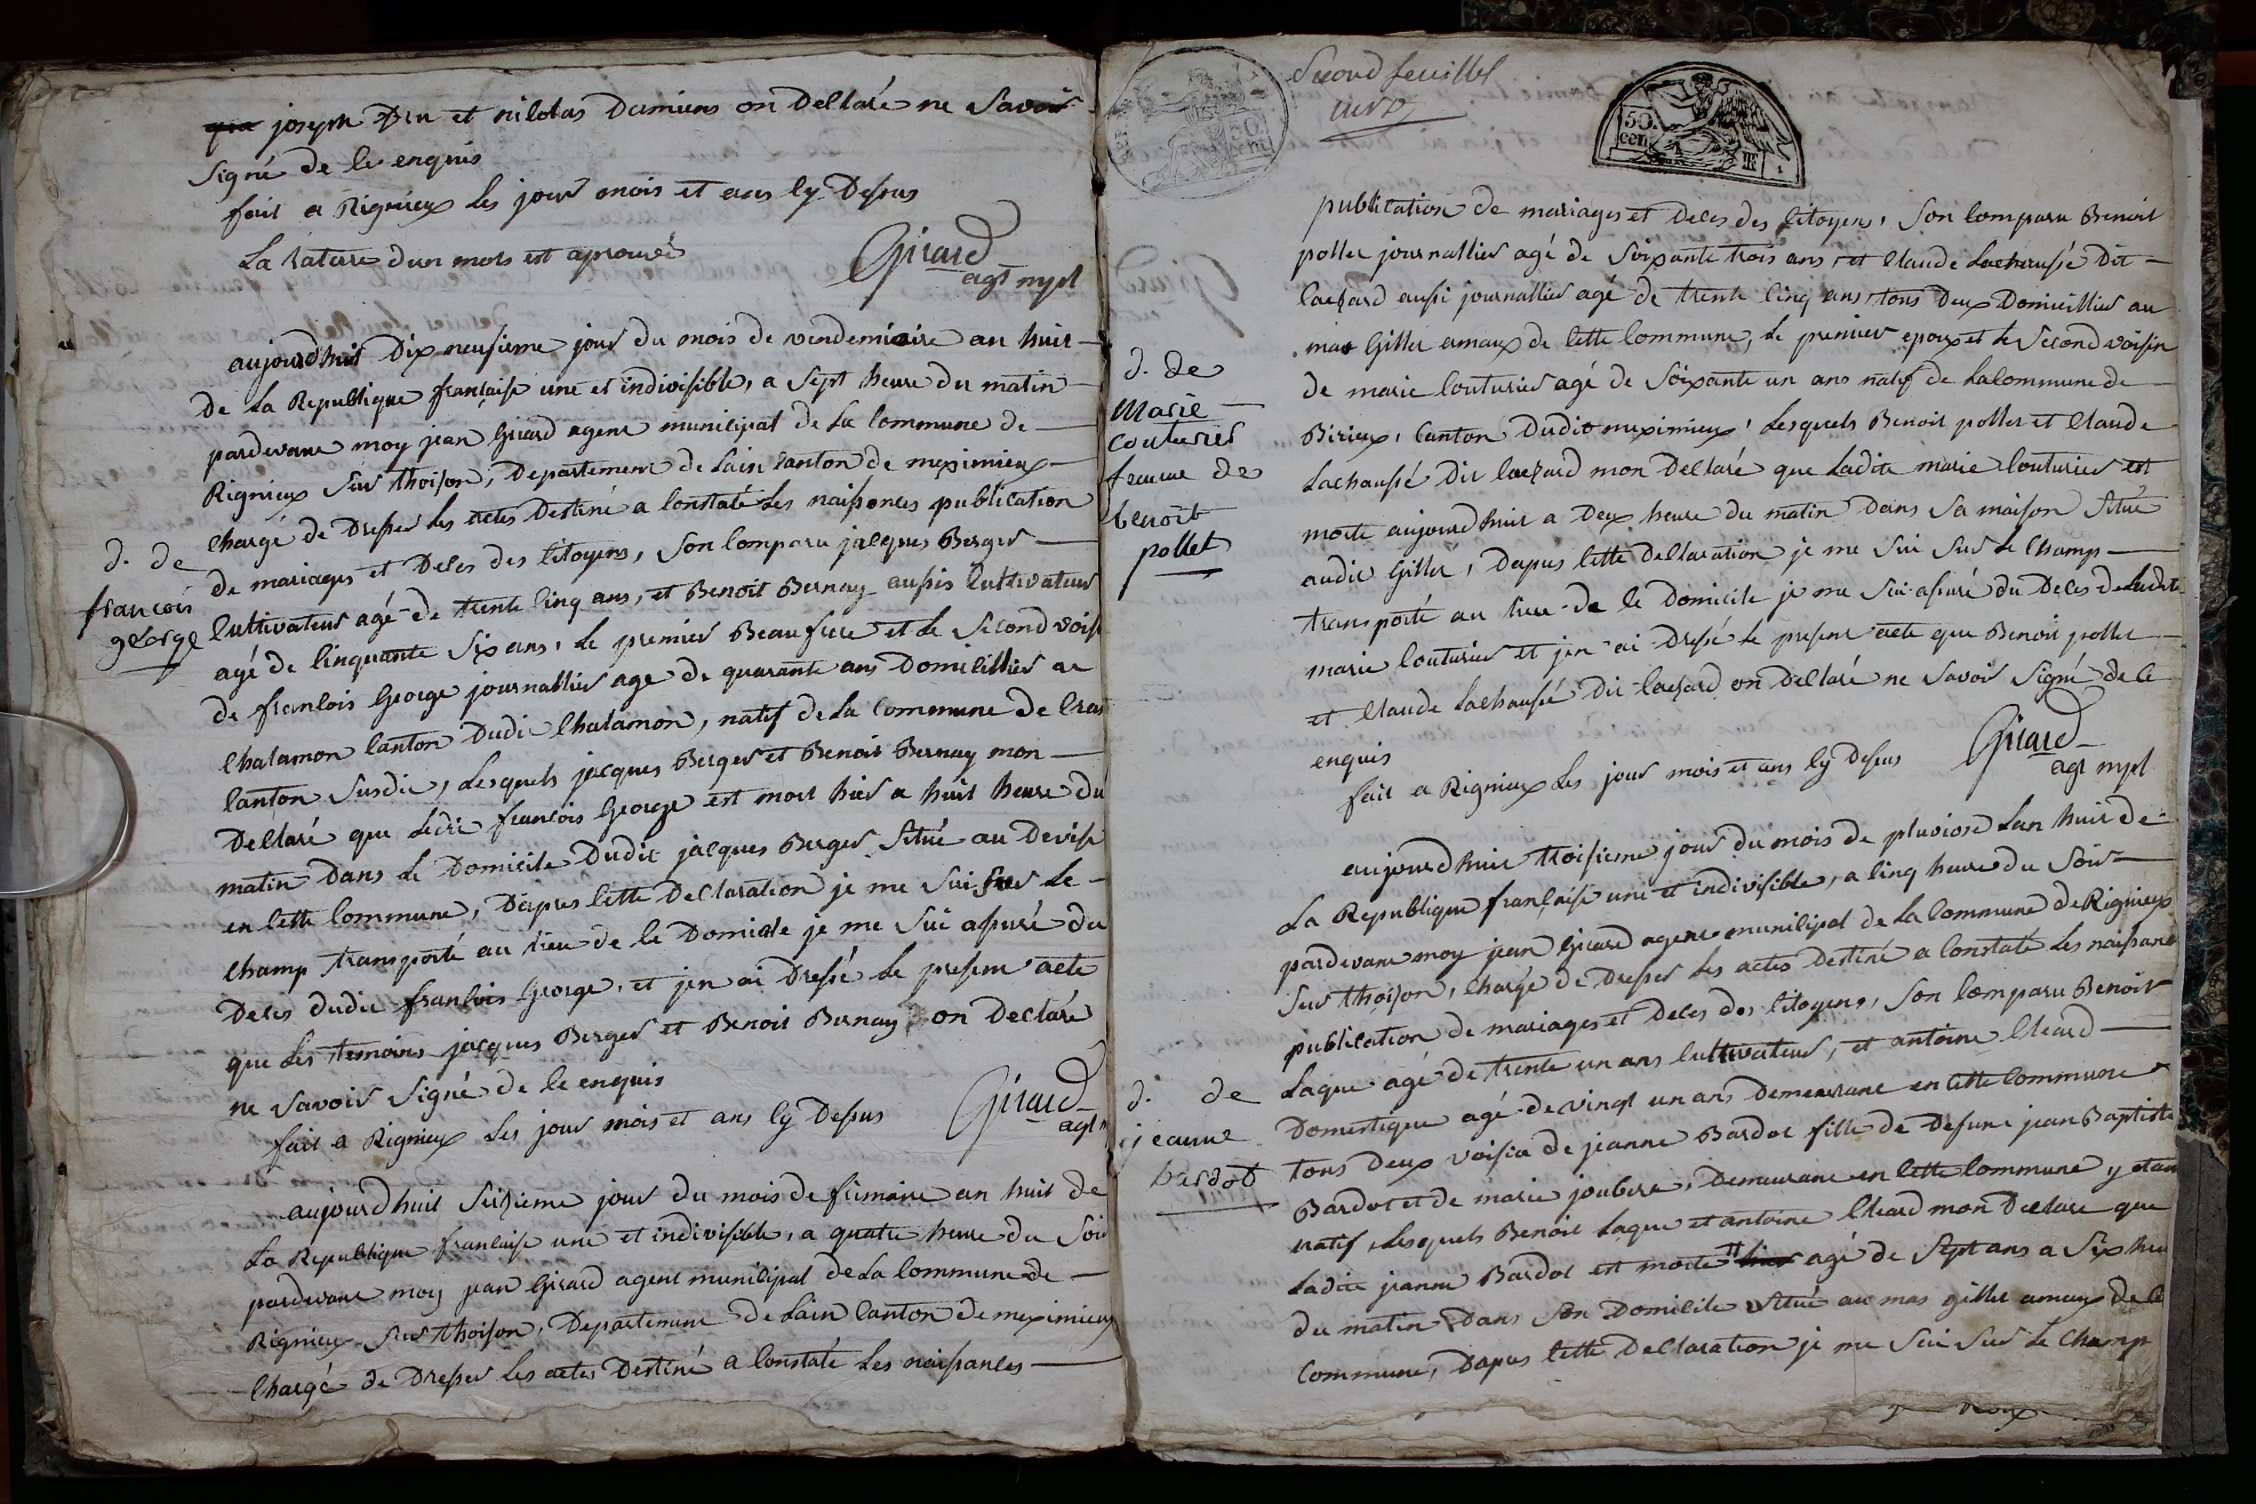 que joseph Bru et nicolas Damiens on Declaré ne Savoir
Signé de ce enquis
fait a Rignieux Les jour mois et ans Cy Desus
La rature dun mots est aprouvé
Girard
agt mpl
aujourdhui Dix neufieme jour du mois de vendemiaire an huit
De La Republique française une et indivisible, a Sept heure du matin
pardevant moy jean Girard agent municipal de La Commune de
Rignieux Sur thoison, Departement de Lain Canton de meximieux
Chargé de Dresser Les actes Destiné a Constaté Les naissances publication
D. De
françois
george
de mariages et Deces des Citoyens, Son Comparu jacques Berger
Cultivateur agé de trente Cinq ans, et Benoit Bernay aussis Cultivateur
agé de Cinquante Six ans, Le premier Beaufrere et Le Second vois
de françois George journallier age de quarante ans Domicillier a
Chalamon Canton Dudi Chalamon, natif de La Commune de Cras
Canton Susdit, Lesquels jacques Berger et Benoit Bernay mon
Declaré que Ledit françois George est mort hier a huit heure du
matin Dans Le Domicile Dudit jacques Berger Situé au Devise
en Cette Commune, Dapres Cette Declaration je me Sui Sur Le
Champ transporté au Lieu de Ce Domicile je me Sui assuré du
Deces dudit françois George, et jen ai Dressé Le present acte
que Les temoins jacques Berger et Benoit Bernay on Declaré
ne Savoir Signé de Ce enquis
fait a Rignieux Les jour mois et ans Cy Desus
Girard
agt m
aujourdhuit Seizieme jour du mois de frimaire an huit de
La Republique française une et indivisible, a quatre heure du Soir
pardevant moy jean Girard agent municipal de La Commune de
Rignieux Sur thoison, Departement de Lain Canton de meximieux
Chargé de Dresser Les actes Destiné a Constaté Les naissances
Second feuillet
50.
cen.
50
cent
publication de mariages et Deces des Citoyens, Son Comparu Benoit
pollet journallier agé de Soixante trois ans, et Claude Lachaussé Dit
Lazard aussi journallier agé de trente Cinq ans tous Deux Domicillier au
mas Gillet amaux de Cette Commune, Le premier epoux et Le Second voisin
D. De
Marie
couturier
femme de
benoit
pollet
de marie Couturier agé de Soixante un ans natif de La Commune de
Birieux, Canton Dudit meximieux, Lesquels Benoit pollet et Claude
Lachaussé Dit Lazard mon Declaré que Ladite marie Couturier est
morte aujourdhuit a Deux heure du matin Dans Sa maison Situé
audit Gillet, Dapres Cette Declaration je me Sui Sur Le Champ
transporté au Lieu de Ce Domicile je me Sui assuré du Deces de Ladite
marie Couturier et jen ai Dressé Le present acte que Benoit pollet
et Claude Lachaussé Dit Lazard on Declaré ne Savoir Signé de Ce
enquis
fait a Rignieux Les jour mois et ans Cy Desus
Girard
agt mpl
aujourdhuit troisieme jour du mois de pluviose Lan huit de
La Republique française une et indivisible, a Cinq heure du Soir
pardevant moy jean Girard agent municipal de La Commune de Rignieux
Sur thoison, Chargé de Dresser Les actes Destiné a Constaté Les naissance
publication de mariages et Deces des Citoyens, Son Comparu Benoit
D. De
jeanne
bardot
Laque agé de trente un ans Cultivateur, et antoine Cleard
Domestique agé de vingt un ans Demeurant en Cette Commune
tous Deux voisin de jeanne Bardot fille de Defunt jean Baptiste
Bardot et de marie joubert, Demeurant en Cette Commune y etan
natif, Lesquels Benoit Laque et antoine Cleard mon Declare que
Ladite jeanne Bardot est morte hier agé de Sept ans a Six heu
du matin Dans Son Domicile Situé au mas gillet amaux de C
Commune, Dapres Cette Declaration je me Sui Sur Le Champ